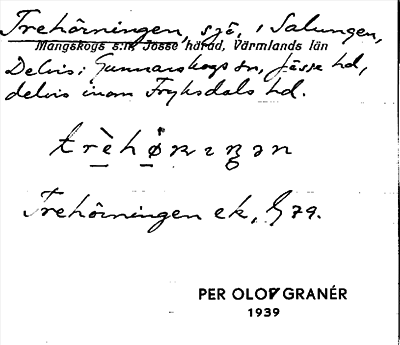 Trehörningen, sjö, i Salungen,
Mangskogs sn, Jösse härad, Värmlands län
Delvis i Gunnarskogs sn, Jösse hd,
delvis inom Fryksdals hd.
Trehörningen ek, G 79.
PER OLOF GRANÉR
1939